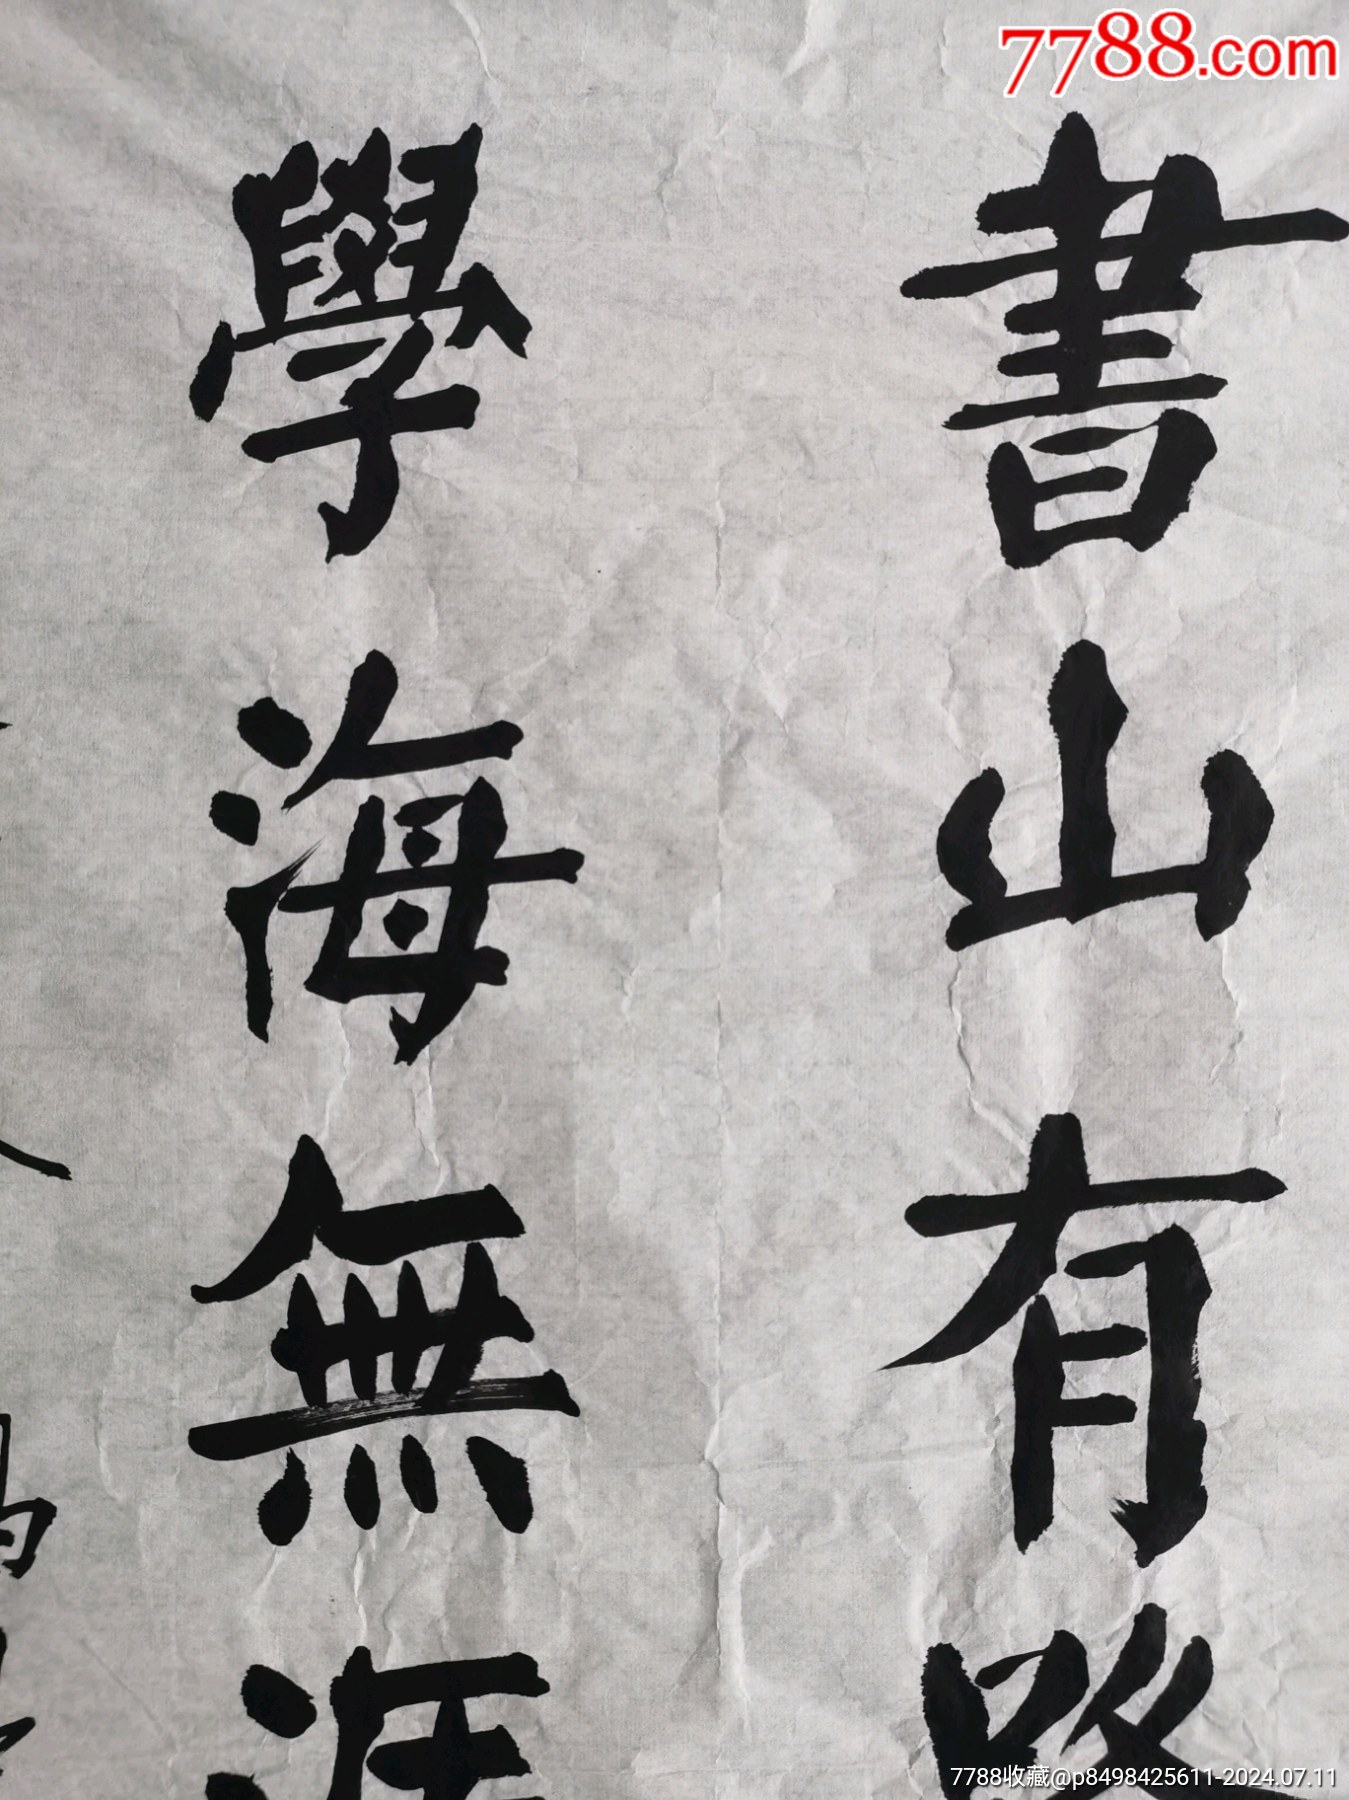 7788.com
書山有路
學海無涯
7788收藏@p8498425611-2024.07.11